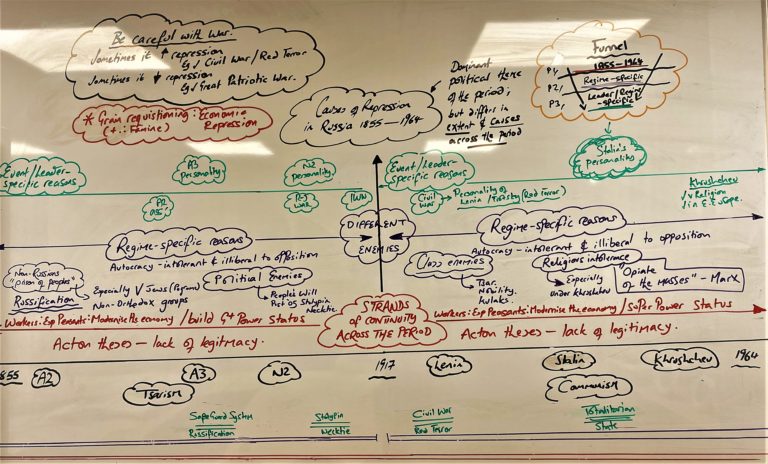 Be Careful with War.
Sometimes it ↑ repression
Eg √ Civil War/Red Terror
Sometimes it ↓ repression
Eg √ Great Patriotic War.
* Grain requistioning: Economic
(+.: Famine) Repression
Causes of Repression
in Russia 1855–1964
Dominant
political theme
of the period;
but differs in
extent & causes
across the period
Funnel
P1, 1855–1964
P2, Regime-specific
P3, Leader/
-specific
Event/Leader-
specific reasons
A3
personality
N2
personality
R-J
War
WWI
Event/Leader-
specific reasons
Civil
War
Personality of
Lenin/Trotsky (Red Terror)
Stalin's
personality
Khrushchev
√ v Religion
√ in E.E
DIFFERENT
ENEMIES
Regime-specific reasons
Autocracy – intolerant & illiberal to opposition
Non-Russians
"prison of peoples"
Russification
Especially V Jews (Pogroms)
Non-Orthodox groups
Political Enemies
People's Will
Stolypin
Necktie
Regime-specific reasons
Autocracy – intolerant & illiberal to opposition
Class enemies
Tsar.
Nobility.
Kulaks.
Religious intolerance
Especially
under Khrushchev
"Opiate
of the masses" – Marx
STRANDS
OF CONTINUITY
ACROSS THE PERIOD
Workers: Exp Peasants: Modernise the economy / build Gt Power Status
Acton theses – lack of legitmacy.
Workers: Exp Peasants: Modernise the economy / Super Power Status
Acton theses – lack of legitimacy.
1855
A2
A3
N2
1917
Lenin
Stalin
Khrushchev
1964
Tsarism
Communism
Safeguard System
Russification
Stolypin
Necktie
Civil War
Red Terror
Totalitarian
State